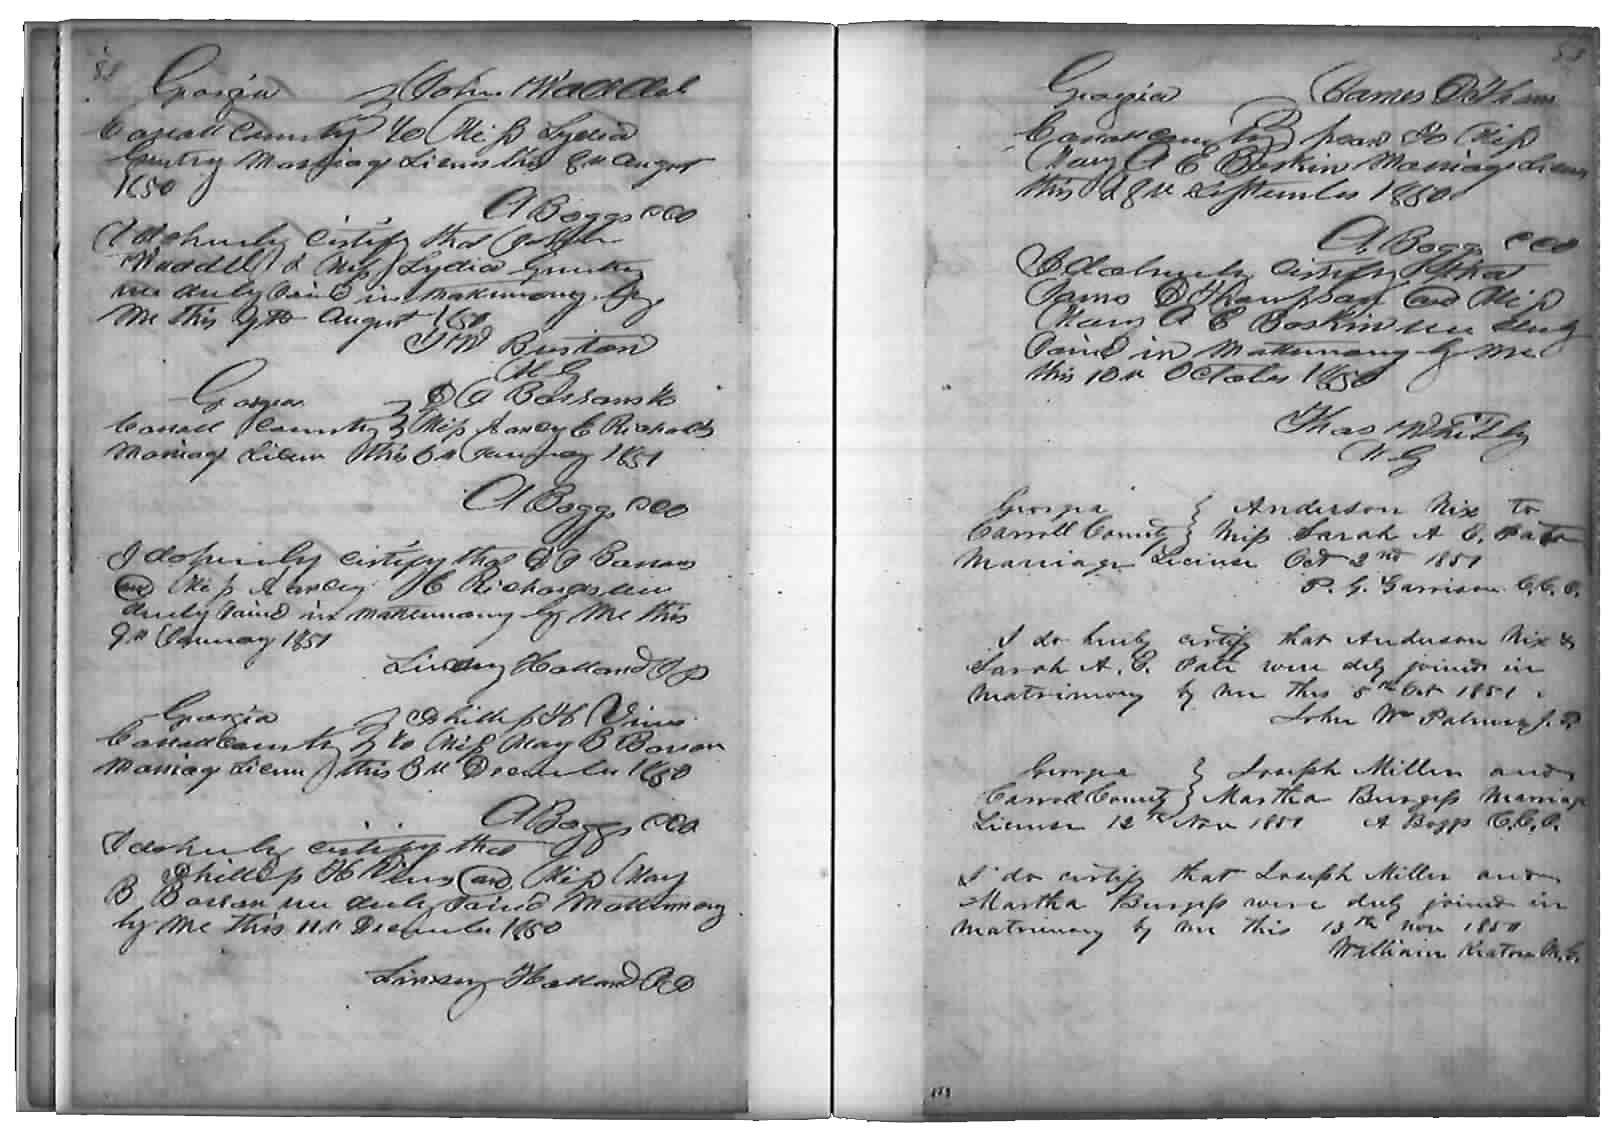 58
Georgia } John Waddel
Carroll County } to Miss Lydia
Gentry Marriage Licens this 8th August
1850
A Boggs CCO
I do hereby certify that
Waddell & Miss Lydia Gentry
were duly Joind in matrimony by
me this 9th August 1850
Burton
M G
Georgia } D A Barrow to
Carroll County } Miss Nancy E Richards
Marriag Licens this 6th January 1851
A Boggs CCO
I do hereby certify that Barrow
and Miss Nancy E Richards were
duly Joind in matrimony by me this
9th January 1851
Lindsey Holland J P
Georgia } Phillip H Vines
Carroll County } to Miss Mary B Barrow
Marriag Licens this 3th December 1850
A Boggs CCO
I do hereby certify that
Phillip H Vines and Miss Mary
B Barrow were duly Joind Matrimony
by me this 11th December 1850
Lindsey Holland J P
58
Georgia James D Thom
Carroll County } pson to Miss
Mary A E Baskin Marriage Licens
this 28th September 1850
A Boggs CCO
I do hereby certify that
James D Thompson and Miss
Mary A E Baskin were duly
Joind in Matrimony by me
this 10th October 1850
Thos Whitby
M G
Georgia } Anderson Nix to
Carroll County } Miss Sarah A E. Pate
Marriage License Oct 2nd 1851
P. G. Garrison C.C.O.
I do herby certify that Anderson Nix &
Sarah A. E. Pate were duly joined in
Matrimony by me this 5th Oct 1851.
John Wm Palmer J. P.
Georgia } Joseph Miller and
Carroll County } Martha Burgess Marriage
License 12th Nov 1850 A Boggs C.C.O.
I do certify that Joseph Miller and
Martha Burgess were duly joined in
Matrimony by me this 13th Nov 1850
William M.G.